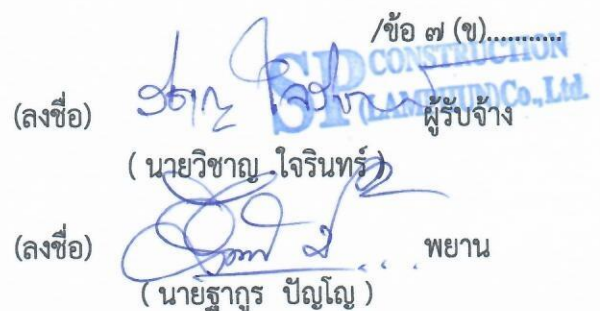 /ข้อ ๗ (ข)...........
SP CONSTRUCTION
(LAMPHUN) Co., Ltd.
(ลงชื่อ) ผู้รับจ้าง
( นายวิชาญ ใจรินทร์ )
(ลงชื่อ) พยาน
( นายฐากูร ปัญโญ )